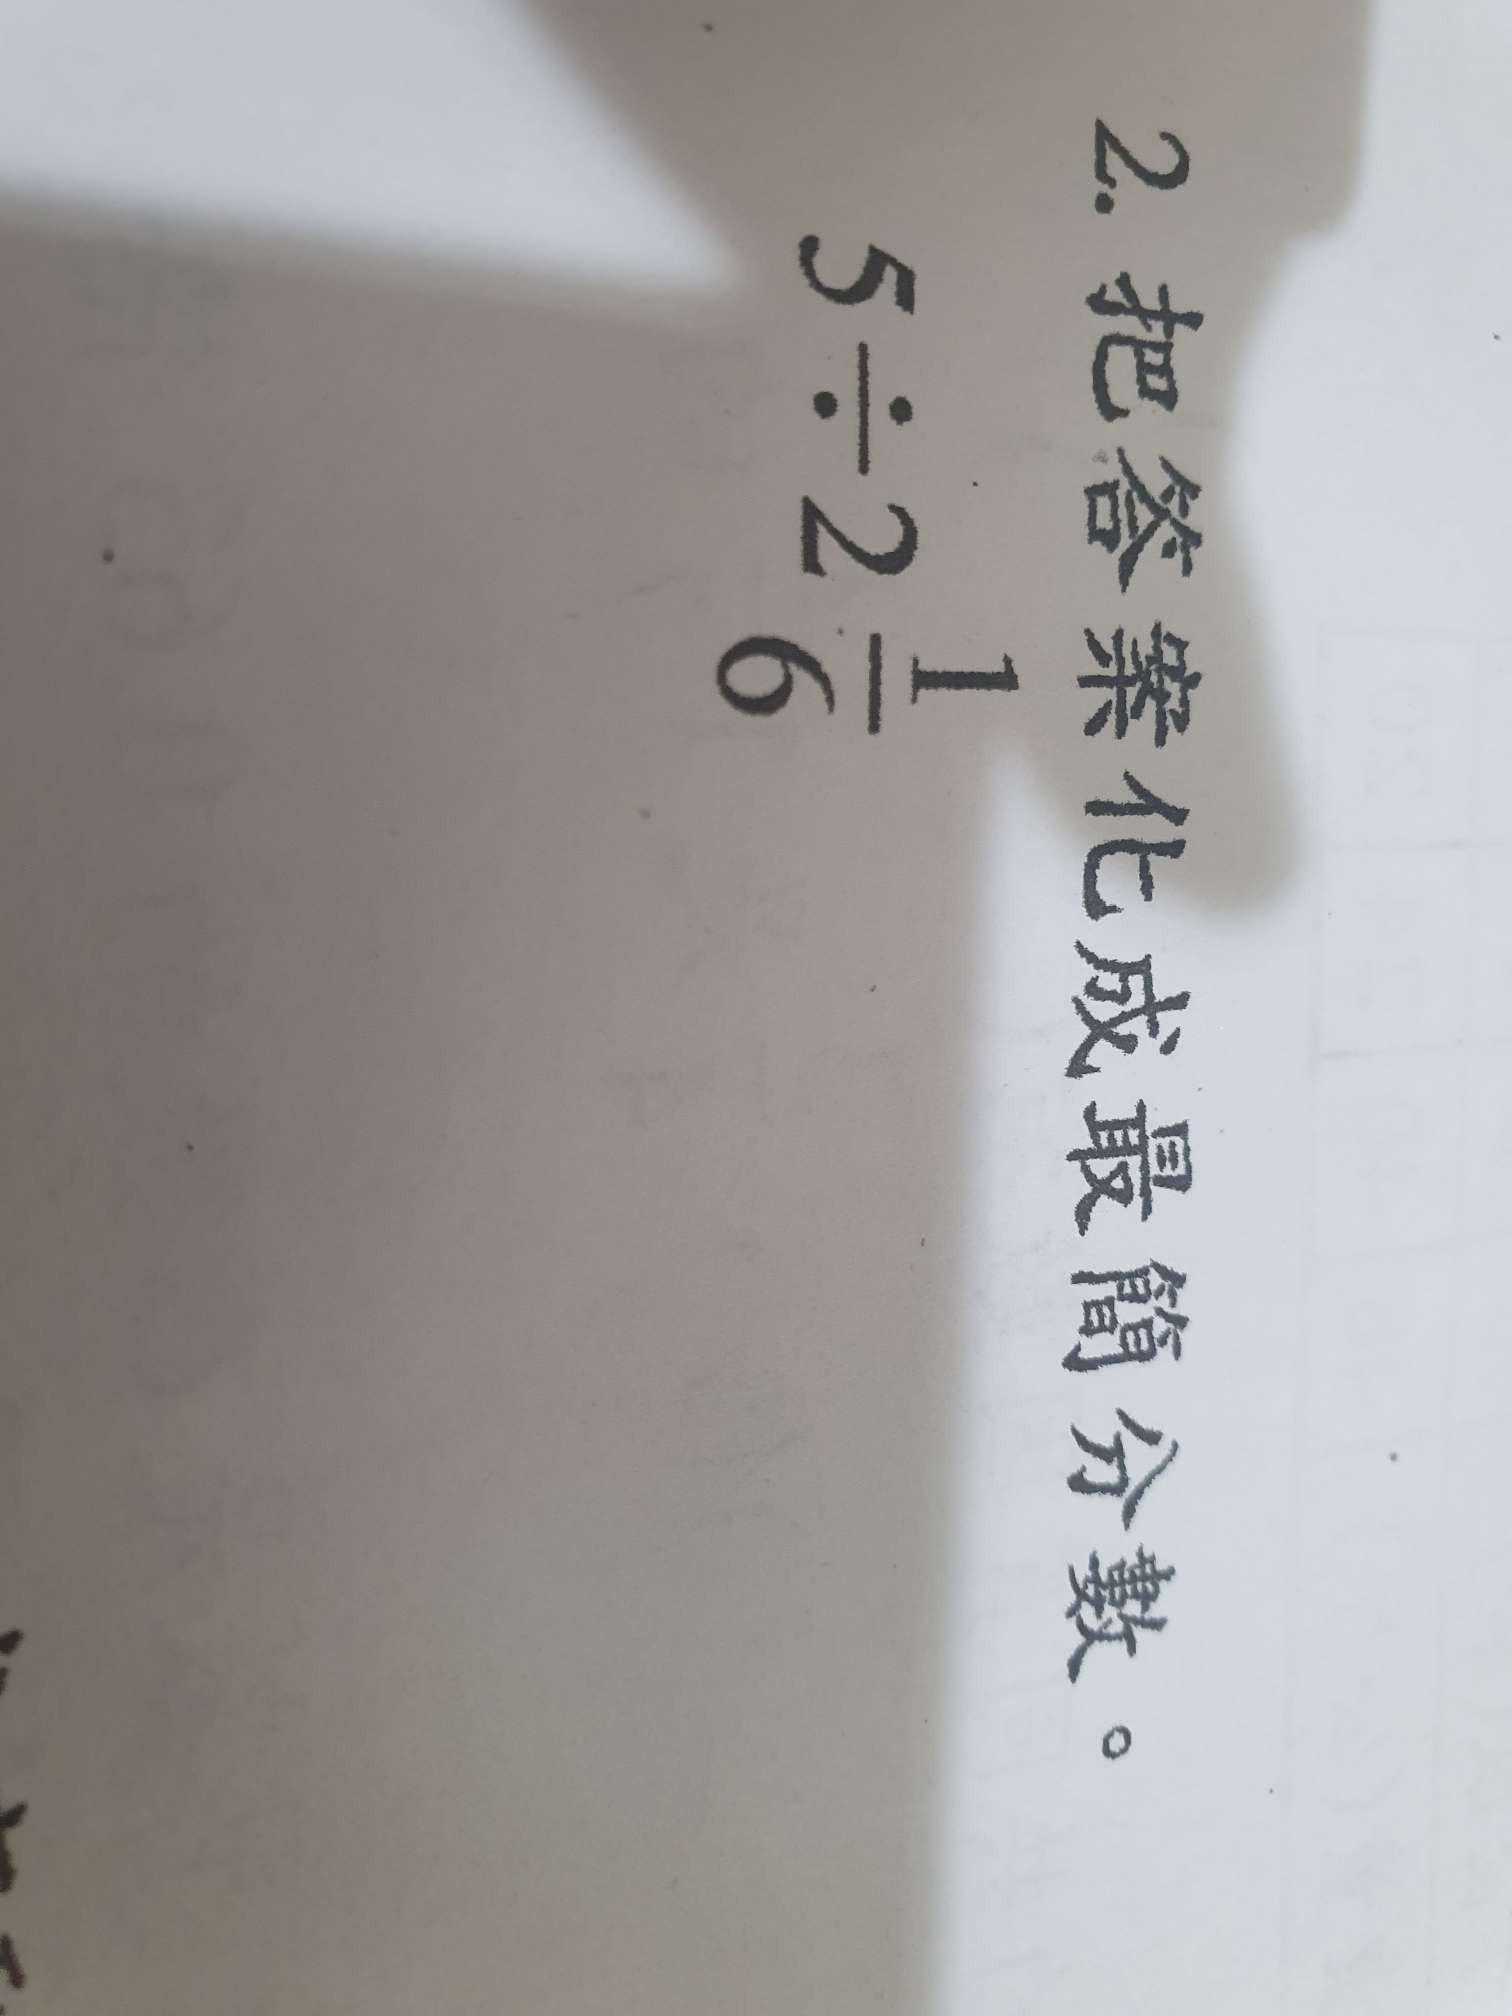 2. 把答案化成最簡分數。
5÷2 1/6